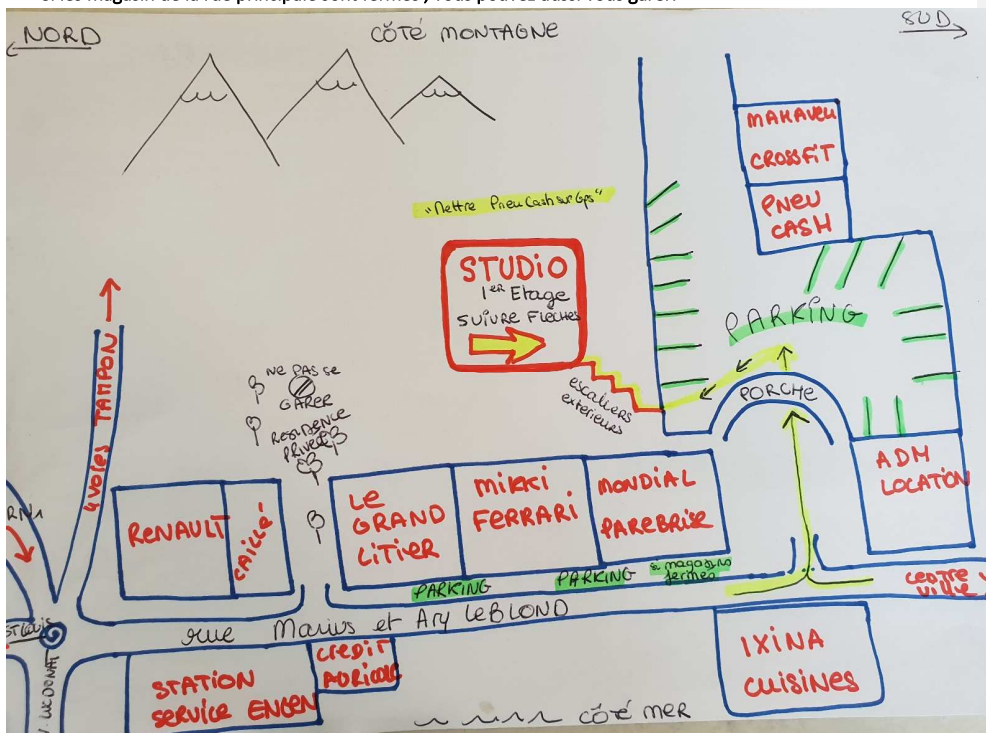 NORD
CÔTÉ MONTAGNE
SUD
MAKAVELI
CROSSFIT
PNEU
CASH
"Mettre Pneu Cash sur Gps"
STUDIO
1er Etage
SUIVRE FLECHES
PARKING
PORCHE
escaliers
extérieurs
4 voies TAMPON
NE PAS SE
GARER
RESIDENCE
PRIVEE
RN1
RENAULT
CAILLE
LE
GRAND
LITIER
MIKKI
FERRARI
MONDIAL
PAREBRISE
ADM
LOCATION
PARKING
PARKING
si magasins
fermés
CENTRE
VILLE
rue Marius et Ary LEBLOND
ST LOUIS
STATION
SERVICE ENGEN
CREDIT
AGRICOLE
IXINA
CUISINES
CÔTÉ MER